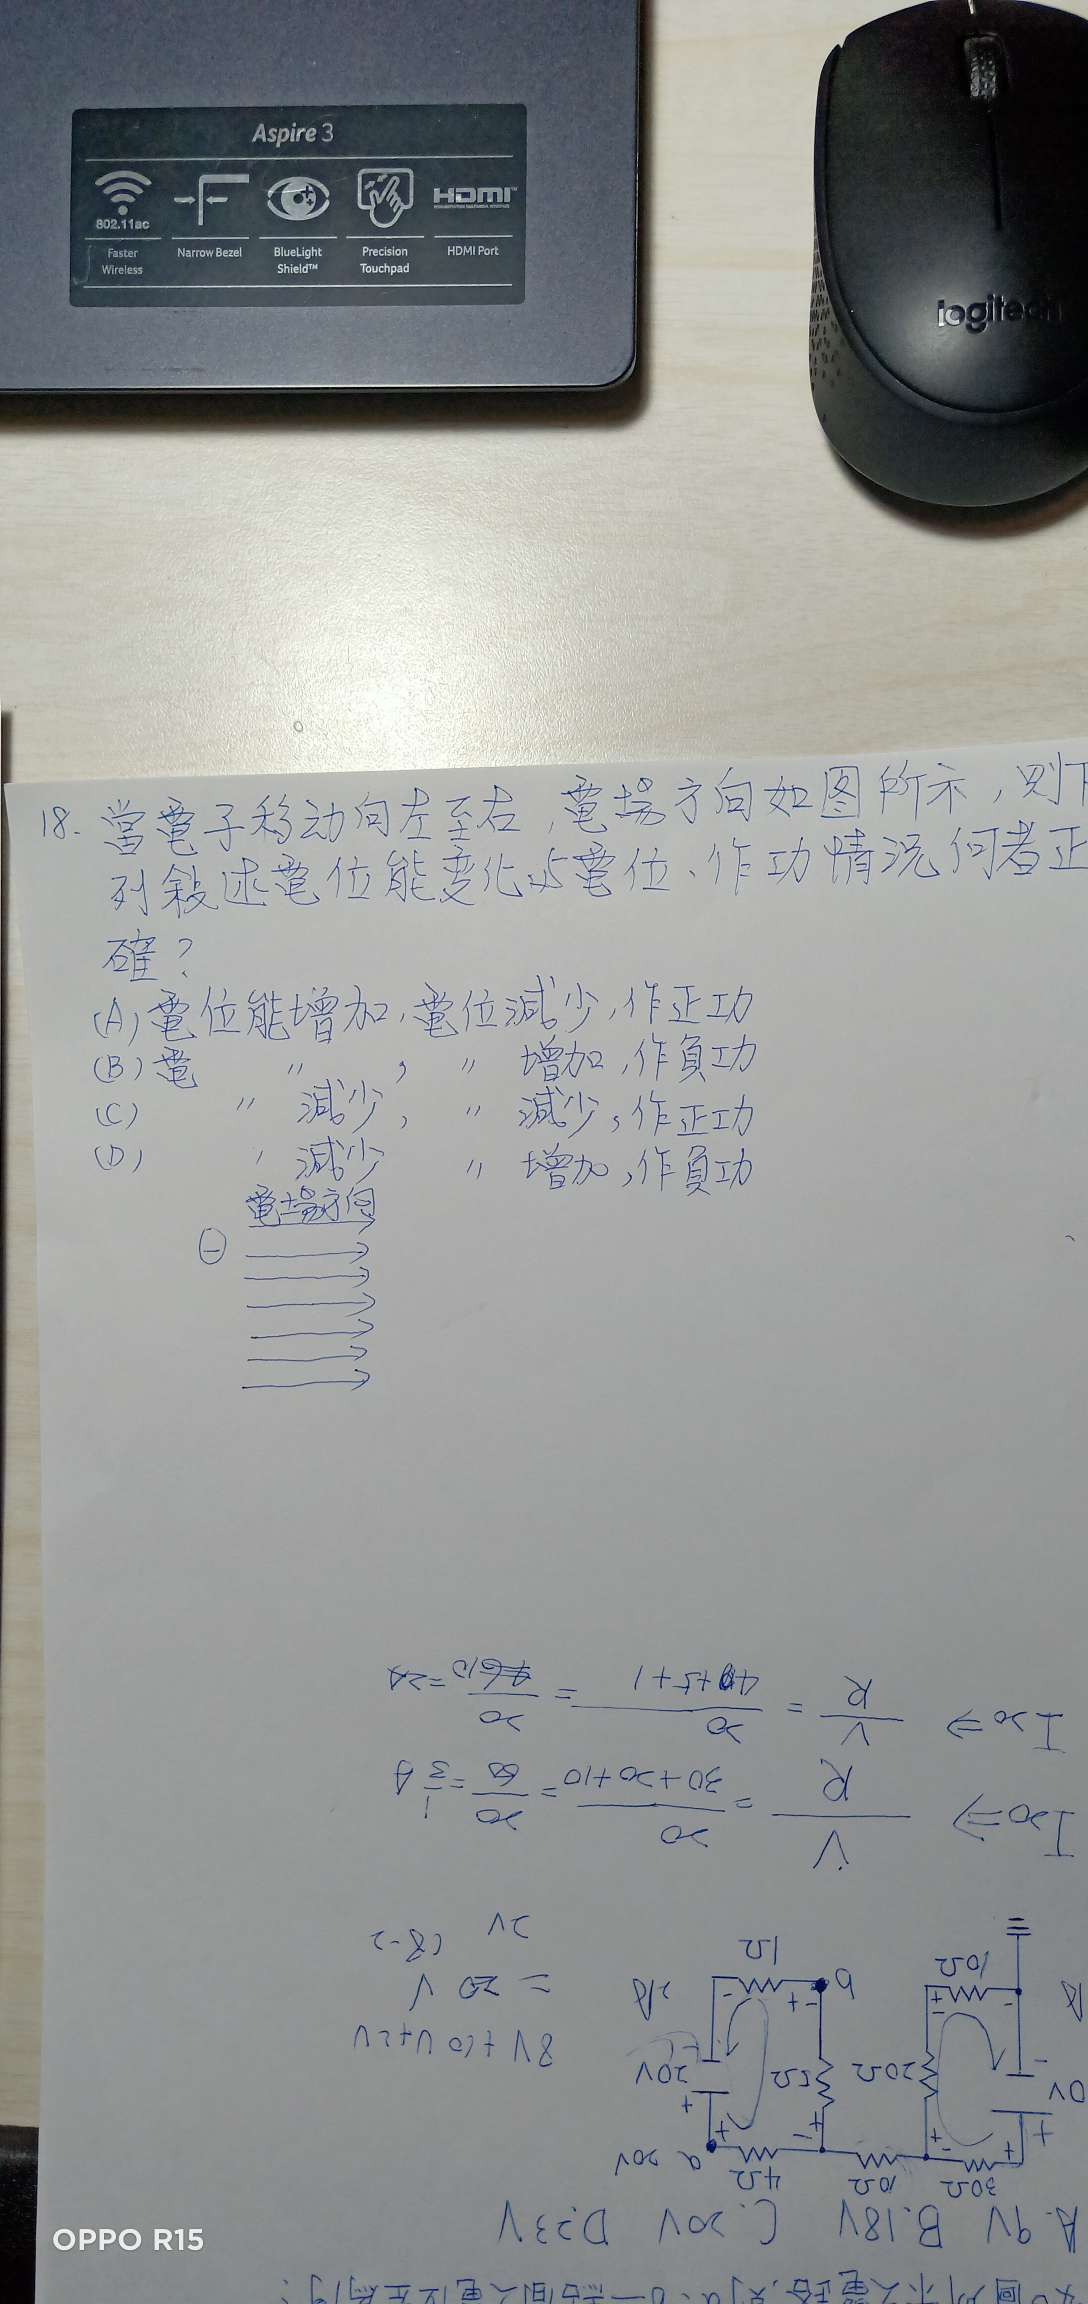 Aspire 3
802.11ac
HDMI
Faster Wireless
Narrow Bezel
BlueLight Shield™
Precision Touchpad
HDMI Port
logitech
18. 當電子移动向左至右,電場方向如图所示,則下
列敍述電位能變化與電位、作功情況何者正
確?
(A) 電位能增加,電位減少,作正功
(B) 電 〃 , 〃 增加,作負功
(C) 〃 減少, 〃 減少,作正功
(D) 〃 減少 〃 增加,作負功
電場方向
−
A. 9V B. 18V C. 20V D. 23V
30Ω 10Ω 4Ω a 20V
0V 20Ω 5Ω 20V
10Ω b 1Ω 2A
8V+10V+2V
= 20V
18-2
2V
I20 ⇒ V/R = 20/30+20+10 = 20/60 = 1/3 A
I20 ⇒ V/R = 20/4+5+1 = 20/10 = 2A
OPPO R15